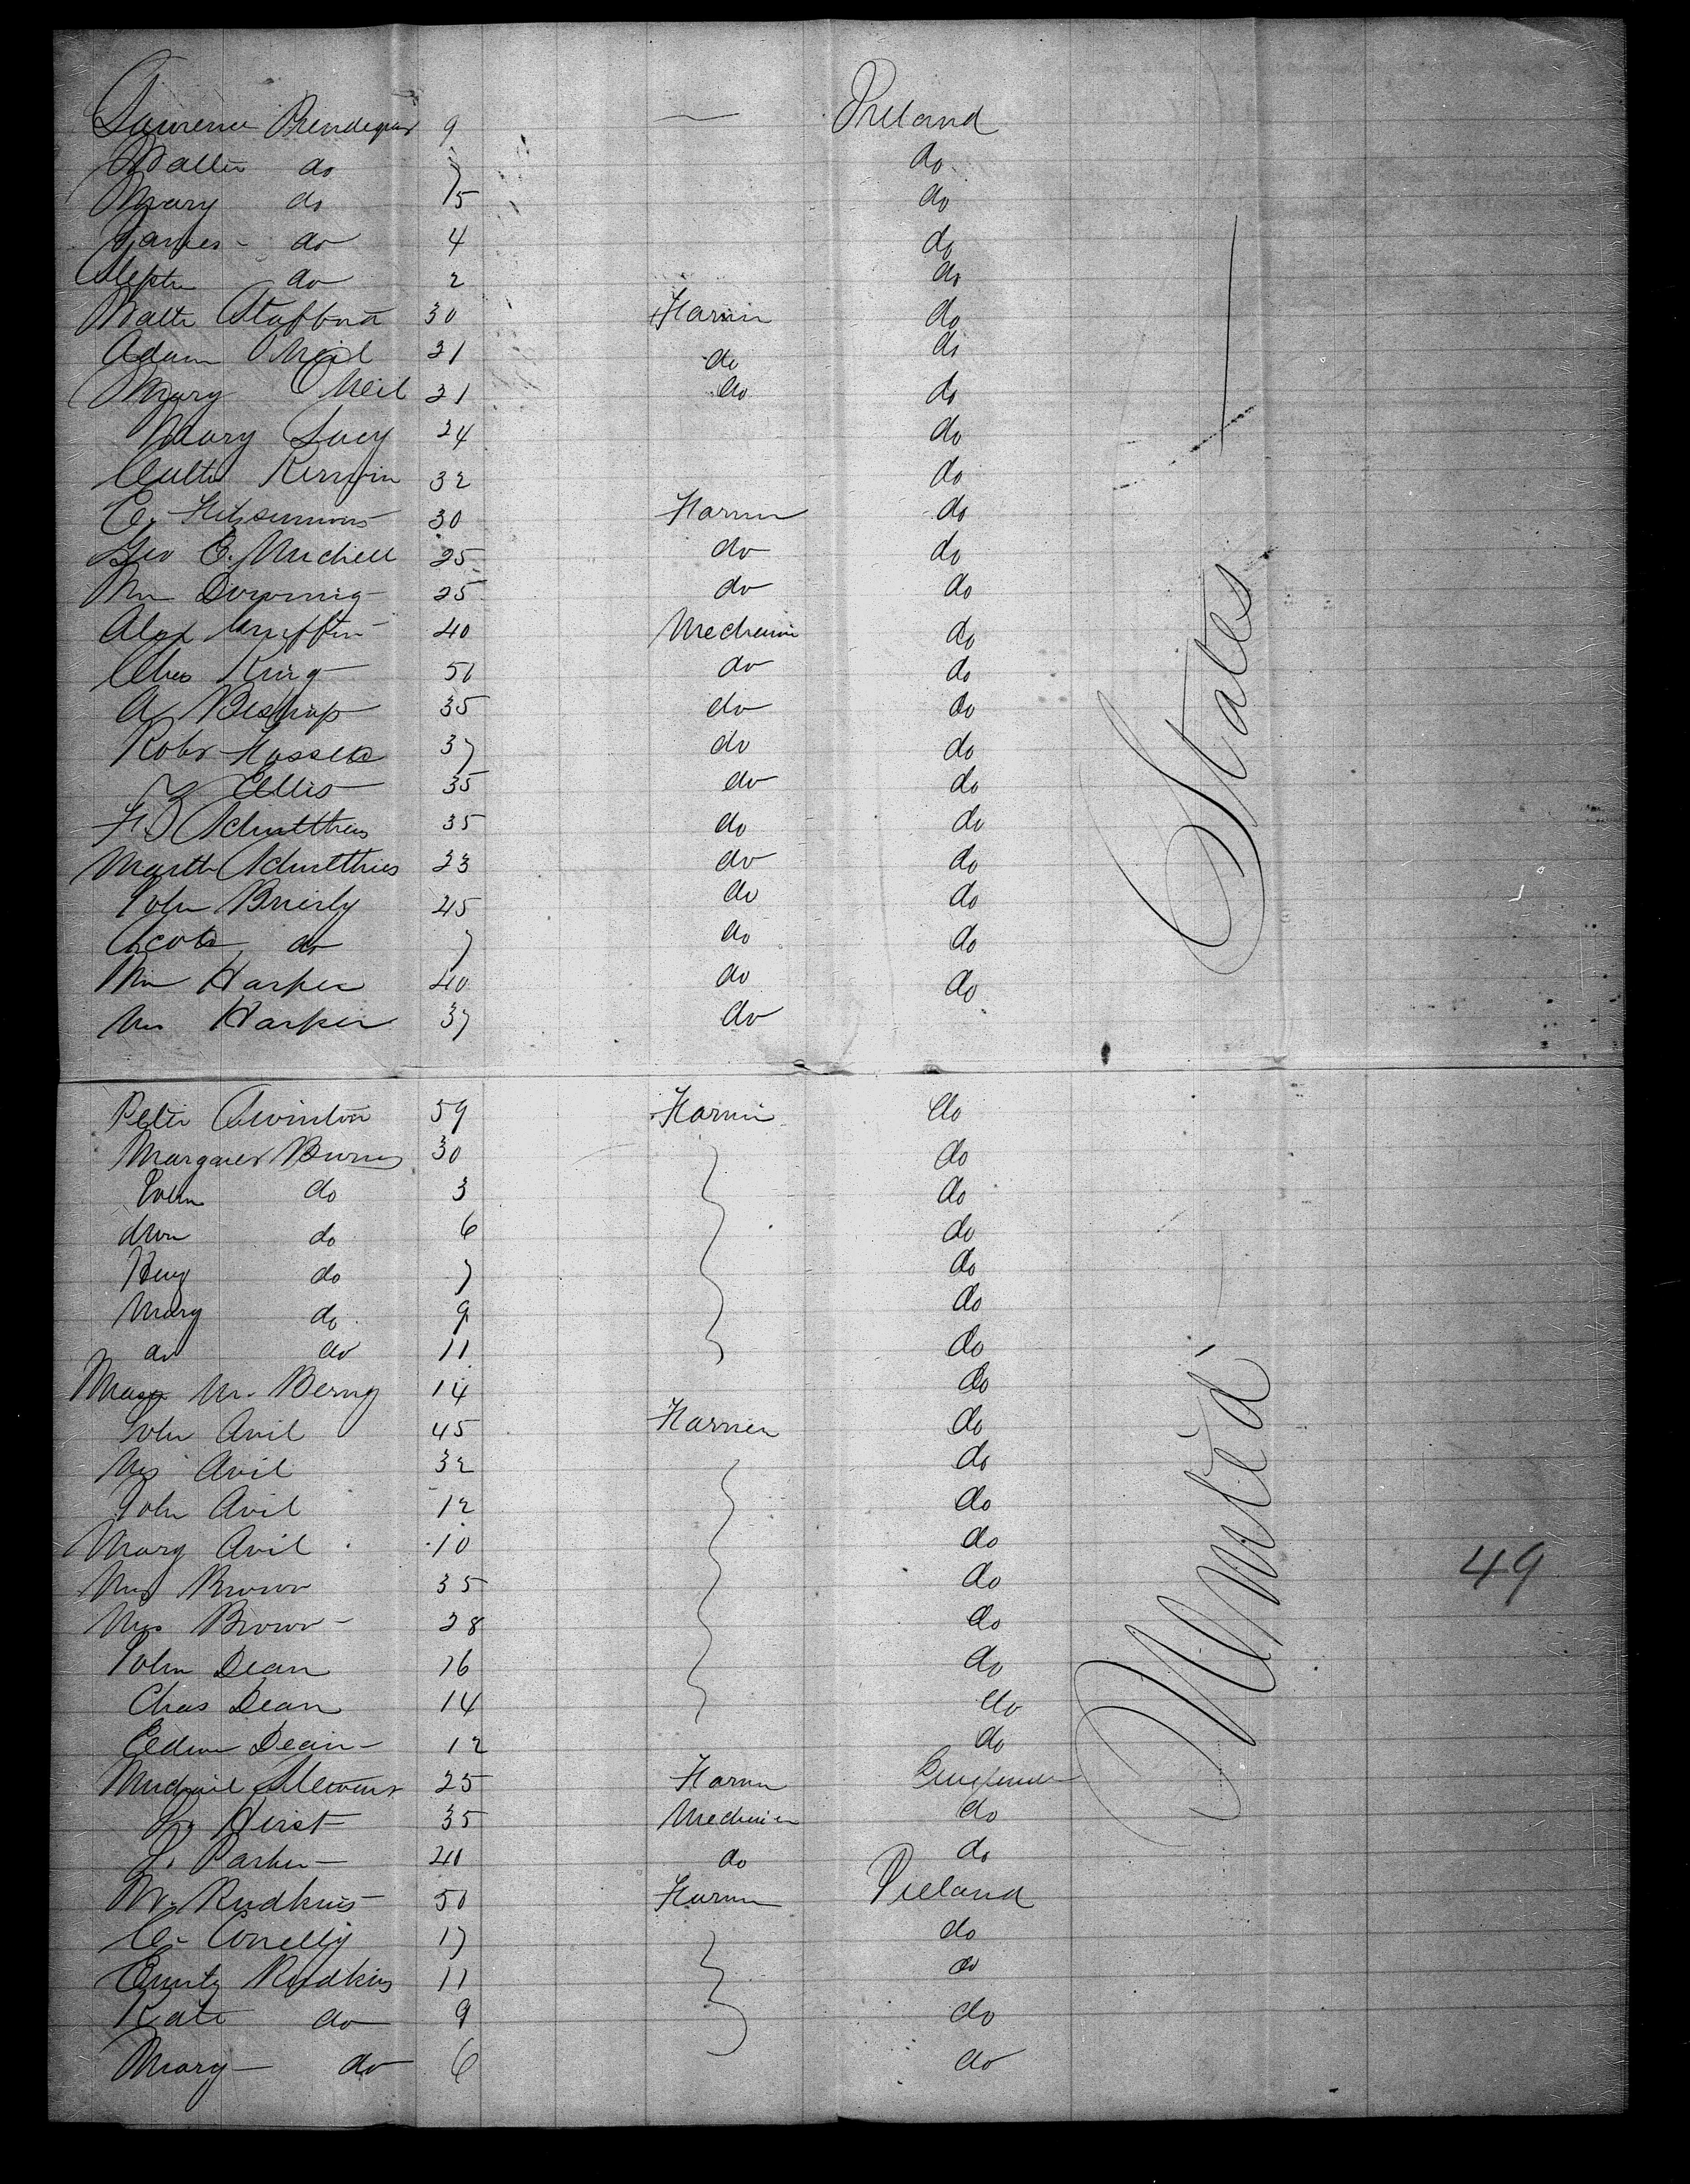 Lawrence Prendegast 9 — Ireland
Walter do 7 do
Mary do 5 do
James - do 4 do
Stephn do 2 do
Walter Stafford 30 Farmer do
Adam O Neil 31 do do
Mary O Neil 21 do do
Mary Lacy 24 do
Kerwin 32 do
E. Fitzsimmons 30 Farmer do
Geo E. Michell 25 do do
Wm Downing 25 do do
Alex Griffin 40 Mechanic do
Chas King 50 do do
A Bishop 35 do do
Robt 37 do do
Ellis 35 do do
35 do do
Martha 23 do do
John Brierly 45 do do
do 7 do do
Wm Harper 40 do do
Mrs Harper 37 do
Peter Swinton 59 Farmer do
Margaret Burns 30 do
John do 3 do
Ann do 6 do
Hug do 7 do
Mary do 9 do
do do 11 do
Mary M. 14 do
John Avil 45 Farmer do
Mrs Avil 32 do
John Avil 12 do
Mary Avil 10 do
Brown 35 do
Mrs Brown 28 do
John Dean 16 do
Chas Dean 14 do
Edwin Dean 12 do
25 Farmer
Hirst 35 Mechanic do
J. Parker 40 do do
W. Rudkins 50 Farmer Ireland
C. Connelly 17 do
Rudkins 11 do
Kate do 9 do
Mary do 6 do
United States
49